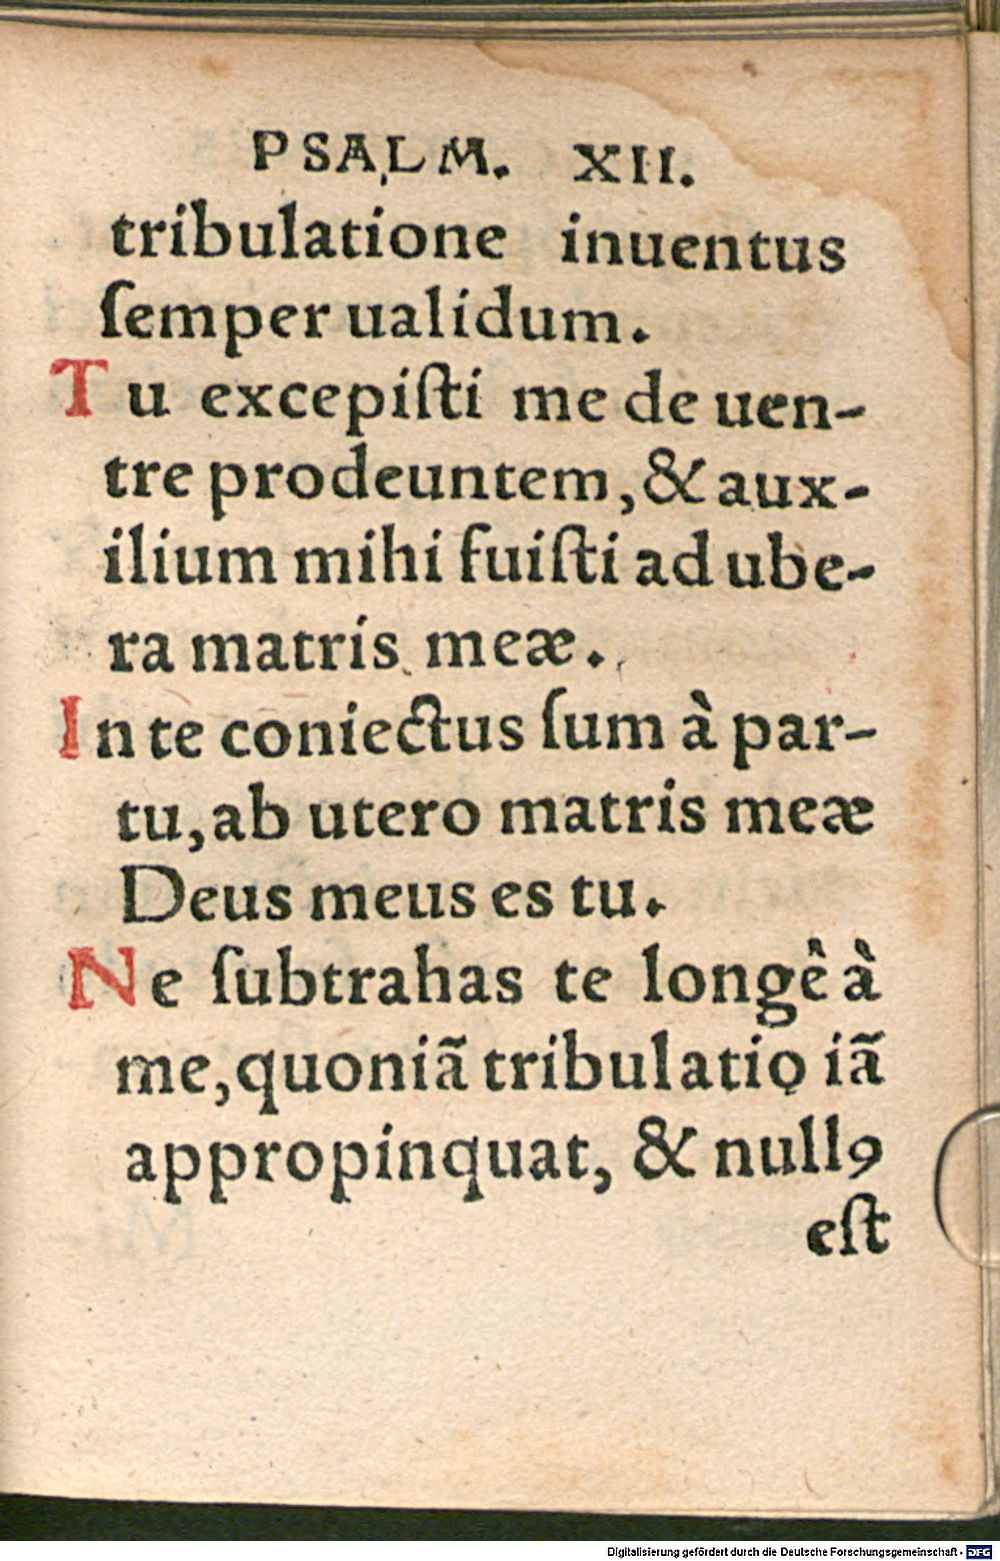 PSALM. XII.
tribulatione inuentus
ſemper ualidum.
Tu excepiſti me de uen-
tre prodeuntem, & aux-
ilium mihi fuiſti ad ube-
ra matris meæ.
In te coniectus ſum à par-
tu, ab utero matris meæ
Deus meus es tu.
Ne ſubtrahas te longê à
me, quoniã tribulatio iã
appropinquat, & nullꝯ
eſt
Digitalisierung gefördert durch die Deutsche Forschungsgemeinschaft - DFG